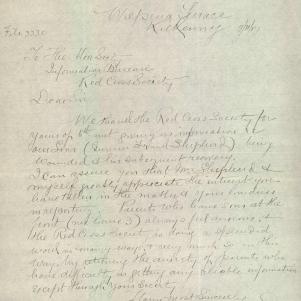 File 3330
Wilpena Terrace
Kilkenny
To The Hon Sec
Information Bureau
Red Cross Society
Dear Sir
We thank the Red Cross Society for
yours of 6th inst giving us information re
our son (Gunner Shepherd) being
wounded & his subsequent recovery.
I can assure you that Mrs Shepherd &
myself greatly appreciate the interest you
have taken in the matter & your kindness
in reporting. Parents who have sons at the
front (we have 3) always feel anxious, &
the Red Cross Society is doing a splendid
work in many ways & very much so in this
way by relieving the anxiety of parents who
have difficulty in getting any reliable information
except through your Society
Yours most Sincerely